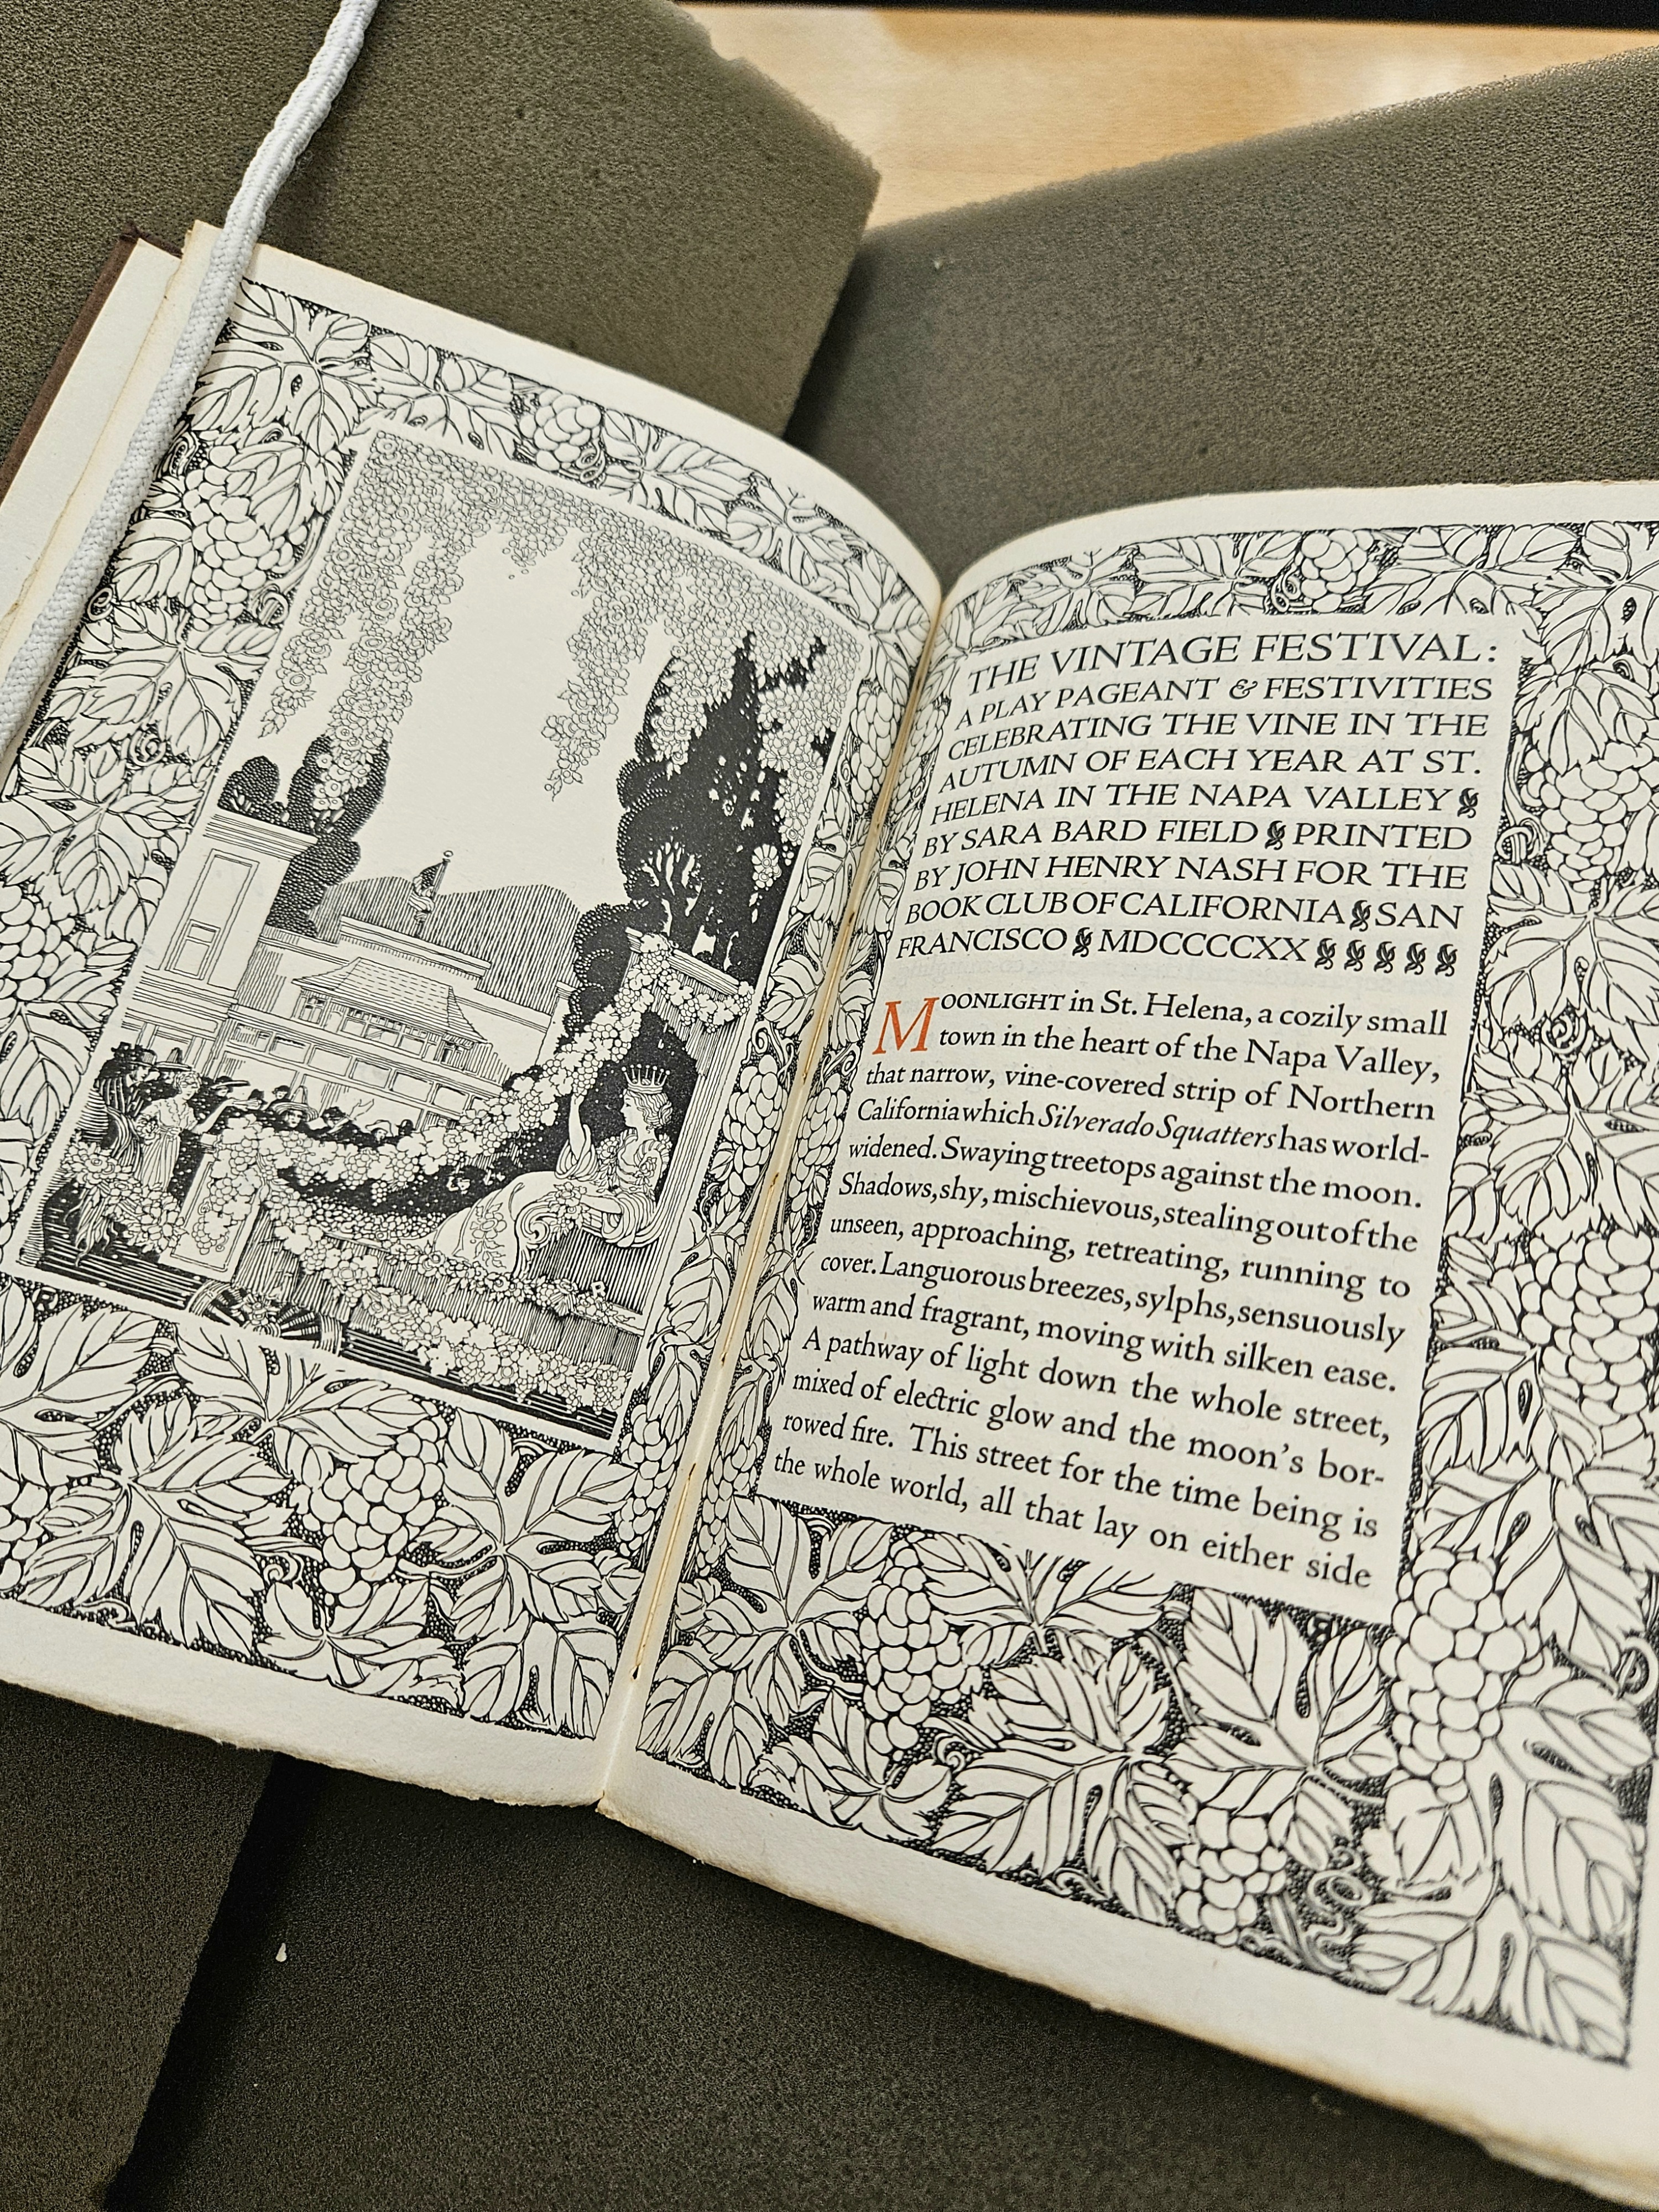 THE VINTAGE FESTIVAL:
A PLAY PAGEANT & FESTIVITIES
CELEBRATING THE VINE IN THE
AUTUMN OF EACH YEAR AT ST.
HELENA IN THE NAPA VALLEY
BY SARA BARD FIELD PRINTED
BY JOHN HENRY NASH FOR THE
BOOK CLUB OF CALIFORNIA SAN
FRANCISCO MDCCCCXX
MOONLIGHT in St. Helena, a cozily small
town in the heart of the Napa Valley,
that narrow, vine-covered strip of Northern
California which Silverado Squatters has world-
widened. Swaying treetops against the moon.
Shadows, shy, mischievous, stealing out of the
unseen, approaching, retreating, running to
cover. Languorous breezes, sylphs, sensuously
warm and fragrant, moving with silken ease.
A pathway of light down the whole street,
mixed of electric glow and the moon's bor-
rowed fire. This street for the time being is
the whole world, all that lay on either side